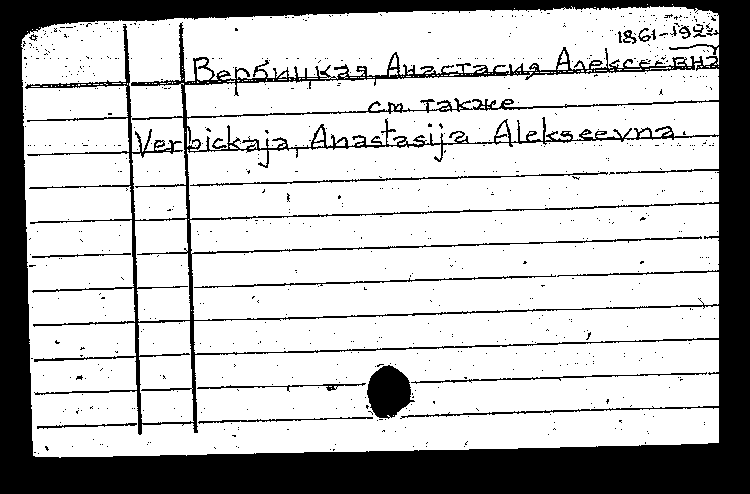 1861-192
Вербицкая, Анастасия Алексеевна
см. также
Verbickaja, Anastasija Alekseevna.